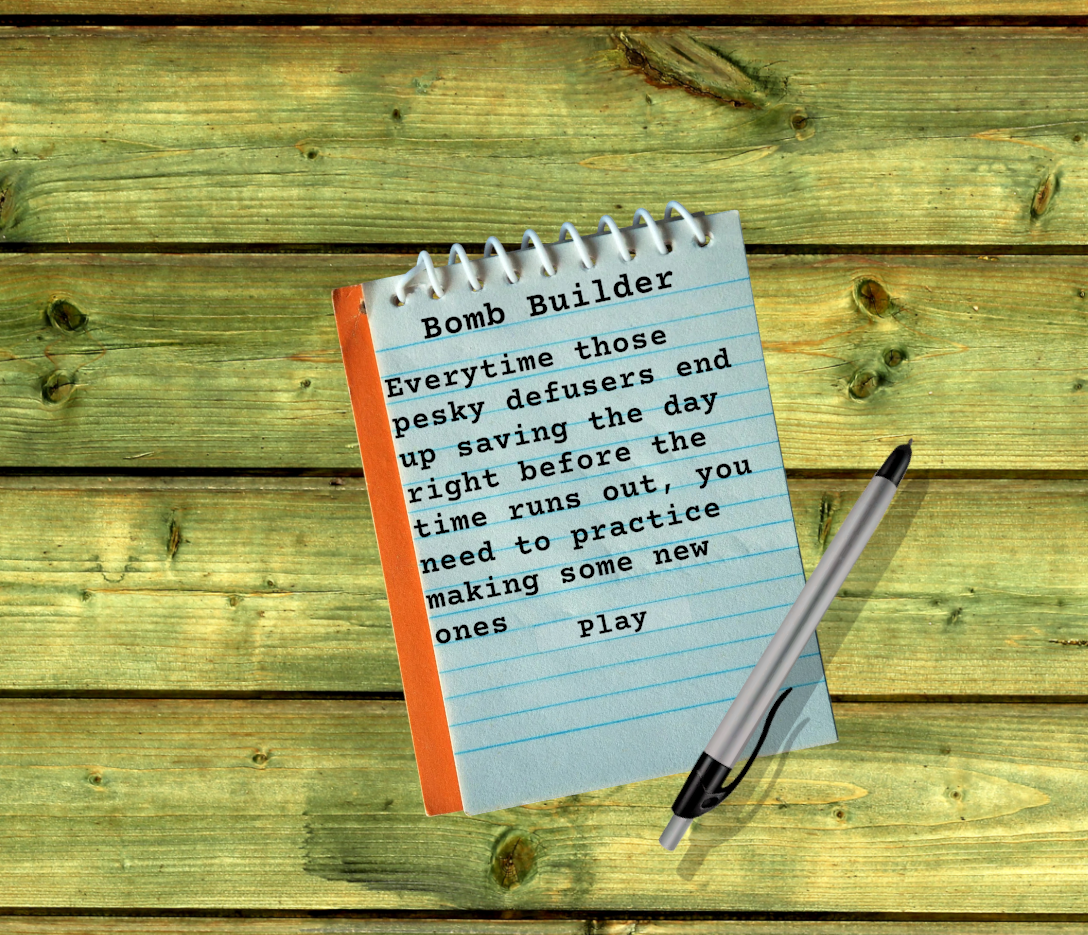 Bomb Builder
Everytime those
pesky defusers end
up saving the day
right before the
time runs out, you
need to practice
making some new
ones
Play